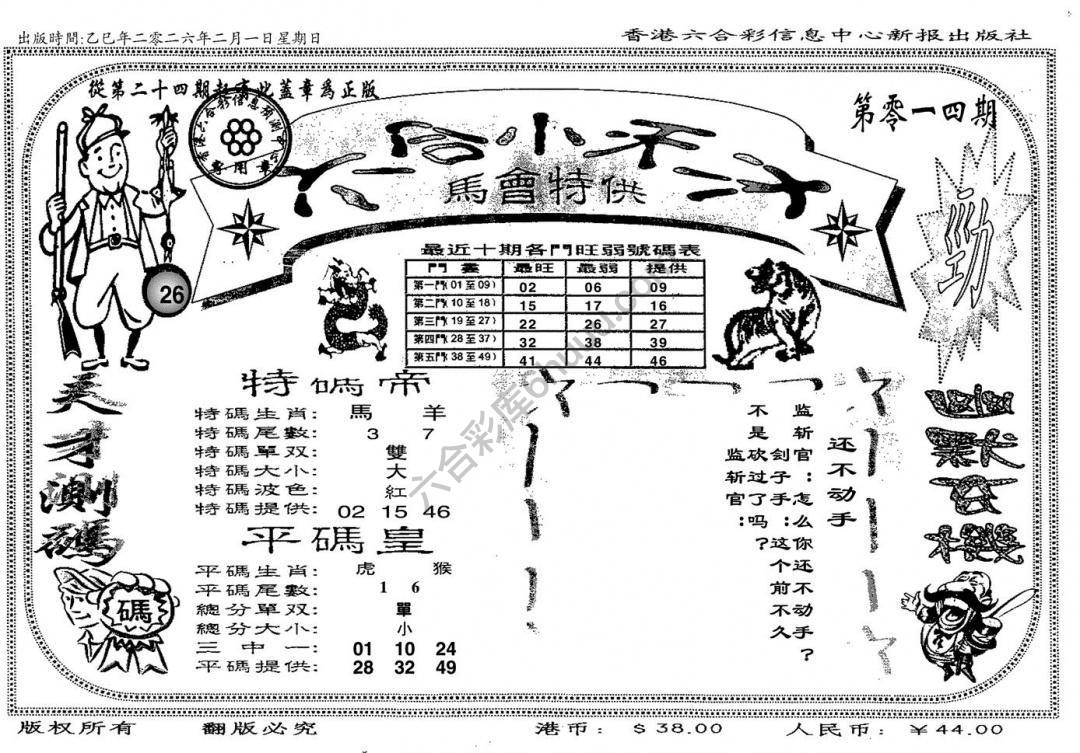 出版時間:乙巳年二零二六年二月一日星期日
香港六合彩信息中心新报出版社
從第二十四期起有此蓋章為正版
專用章
第零一四期
馬會特供
勁
26
最近十期各門旺弱號碼表
門畫 最旺 最弱 提供
第一門(01至09) 02 06 09
第二門(10至18) 15 17 16
第三門(19至27) 22 26 27
第四門(28至37) 32 38 39
第五門(38至49) 41 44 46
天才測碼
特碼帝
特碼生肖: 馬 羊
特碼尾數: 3 7
特碼單双: 雙
特碼大小: 大
特碼波色: 紅
特碼提供: 02 15 46
平碼皇
平碼生肖: 虎 猴
平碼尾數: 1 6
總分單双: 單
總分大小: 小
三中一: 01 10 24
平碼提供: 28 32 49
碼
还不动手
监斩官:怎么你还不动手?
刽子手:这个前不久
不是砍过了吗?
监斩官:
幽默玄機
六合彩库6huuu.com
版权所有
翻版必究
港币: $38.00
人民币: ￥44.00